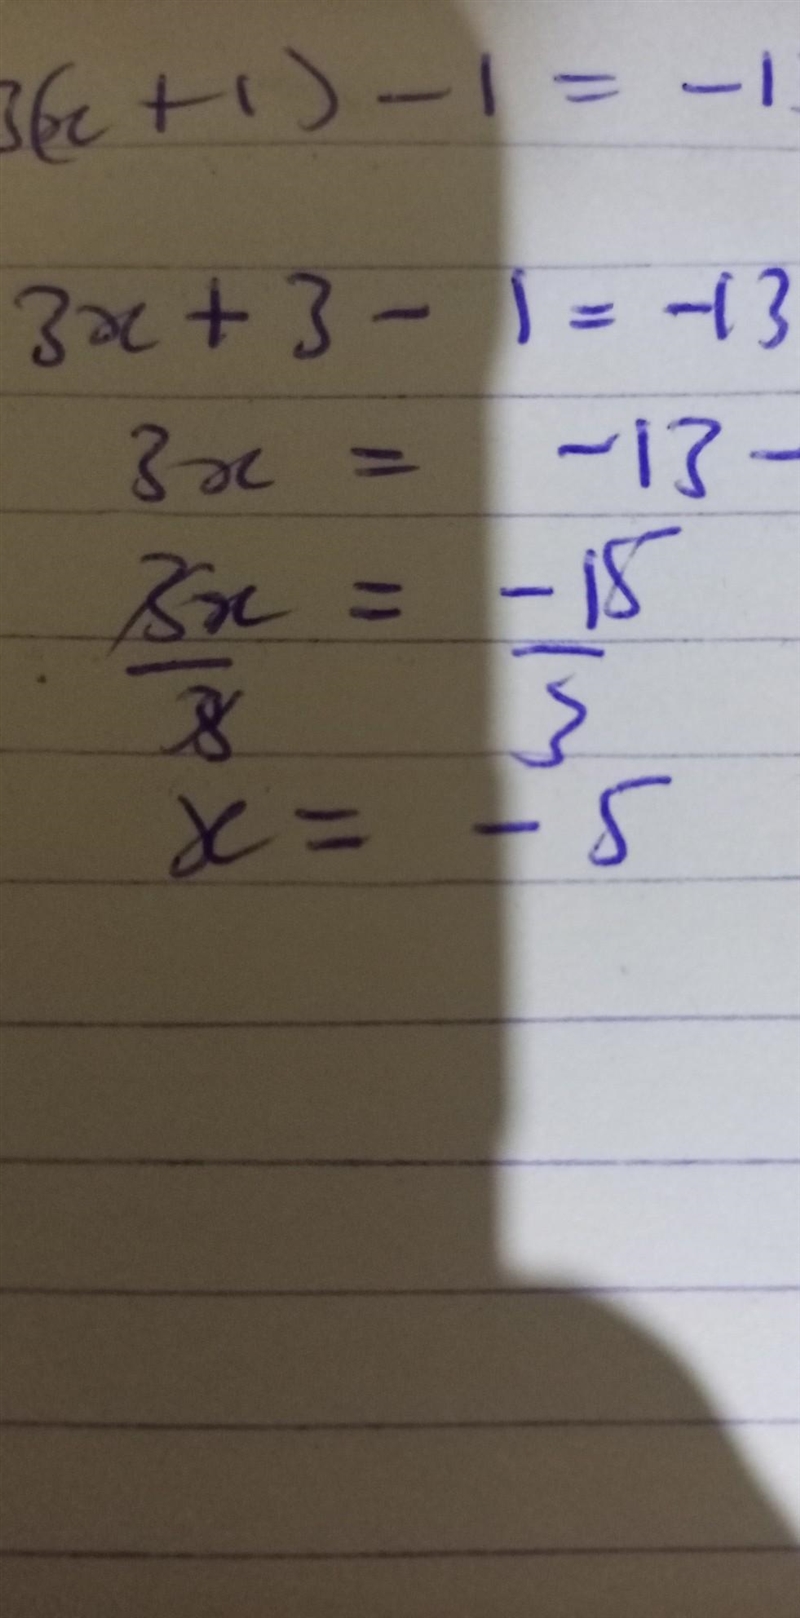 3(x + 1) - 1 = -1
3x + 3 - 1 = -13
3x = -13 -
3x = -15
3 3
x = -5